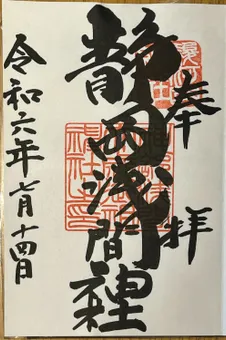 奉拝
静岡浅間神社
令和六年七月十四日